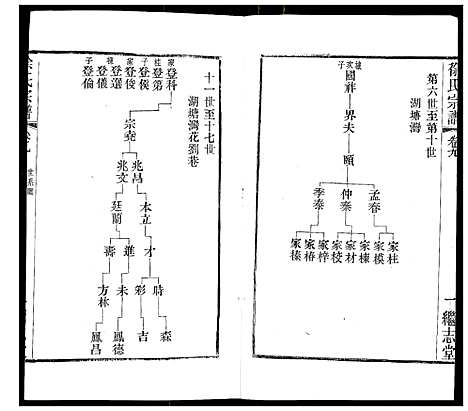 徐氏宗譜 卷九
一 繼志堂
第六世至第十世
湖塘灣
國祚
界夫
頤
孟春 仲秦 季泰
家柱 家模 家棟 家材 家梓 家椿 家榛
十一世至十七世
湖塘灣花劉巷
登科 登第 登俟 登俊 登選 登儀 登倫
宗堯
兆昌 兆文
本立 廷蘭
才 進 壽
時 彩 未 方林
森 吉 鳳德 鳳昌
世系圖